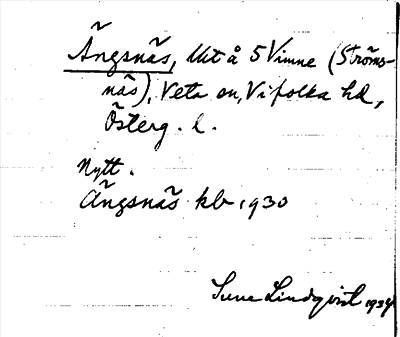 Ängsnäs, lht å 5 Vimne (Ströms-
näs), Veta sn, Vifolka hd,
Österg. l.
Nytt.
Ängsnäs kb 1930
Sune Lindqvist 1934